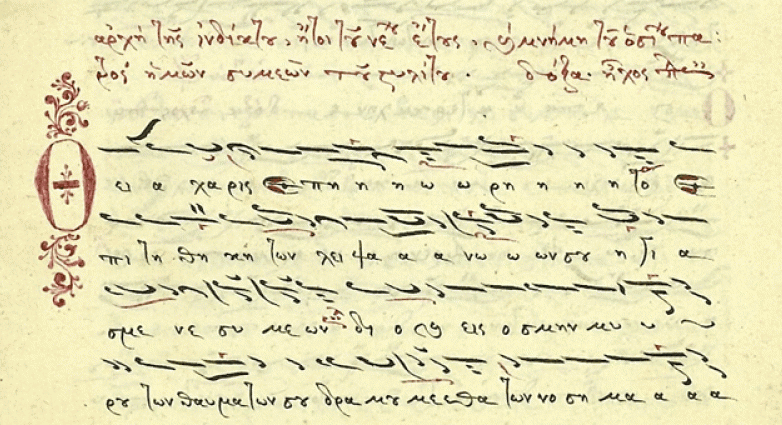 ἀρχὴ τῆς ἰνδίκτου, ἤτοι τοῦ νέου ἔτους, μνήμη τοῦ ὁσίου πα:
τρὸς ἡμῶν συμεὼν τοῦ στυλίτου. δόξα. ἦχος πλ
Ο
ει α χαρις ε πη η η ω ω ρη η η η το ε
πι τη θη κη των λει ψα α α νω ω ων σου η γι α
σμε νε συ με ων δη ο εις ο σμην μυ υ
ρου των θαυμα των σου δρα μου με ε θα των νο ση μα α α α